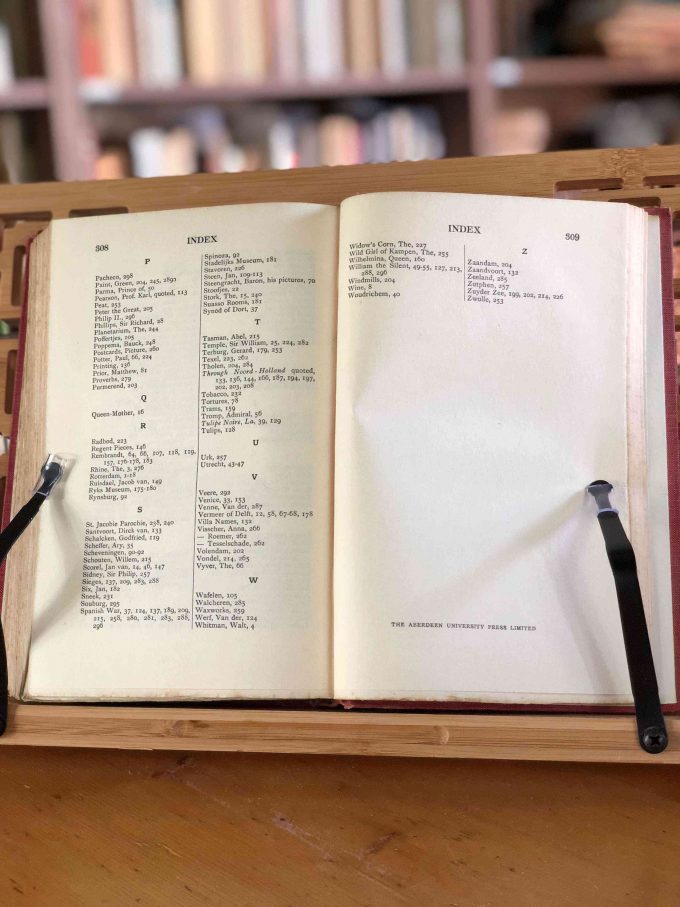 308
INDEX
P
Pacheco, 298
Paint, Green, 204, 245, 289
Parma, Prince of, 50
Pearson, Prof. Karl, quoted, 113
Peat, 253
Peter the Great, 205
Philip II., 296
Phillips, Sir Richard, 28
Planetarium, The, 244
Poffertjes, 105
Poppema, Bauck, 248
Postcards, Picture, 260
Potter, Paul, 66, 224
Printing, 136
Prior, Matthew, 81
Proverbs, 279
Purmerend, 203
Q
Queen-Mother, 16
R
Radbod, 223
Regent Pieces, 146
Rembrandt, 64, 66, 107, 118, 119,
157, 176-178, 183
Rhine, The, 3, 276
Rotterdam, 1-18
Ruisdael, Jacob van, 149
Ryks Museum, 175-180
Rynsburg, 92
S
St. Jacobie Parochie, 238, 240
Santvoort, Dirck van, 133
Schalcken, Godfried, 119
Scheffer, Ary, 35
Scheveningen, 90-92
Schouten, Willem, 215
Scorel, Jan van, 14, 46, 147
Sidney, Sir Philip, 257
Sieges, 137, 209, 283, 288
Six, Jan, 182
Sneek, 231
Souburg, 295
Spanish War, 37, 124, 137, 189, 209,
215, 258, 280, 281, 283, 288,
296
Spinoza, 92
Stadelijks Museum, 181
Stavoren, 226
Steen, Jan, 109-113
Steengracht, Baron, his pictures, 70
Stoofjes, 22
Stork, The, 15, 240
Suasso Rooms, 181
Synod of Dort, 37
T
Tasman, Abel, 215
Temple, Sir William, 25, 224, 282
Terburg, Gerard, 179, 253
Texel, 223, 262
Tholen, 204, 284
Through Noord-Holland quoted,
133, 136, 144, 166, 187, 194, 197,
202, 203, 208
Tobacco, 232
Tortures, 78
Trams, 159
Tromp, Admiral, 56
Tulipe Noire, La, 39, 129
Tulips, 128
U
Urk, 257
Utrecht, 43-47
V
Veere, 292
Venice, 33, 153
Venne, Van der, 287
Vermeer of Delft, 12, 58, 67-68, 178
Villa Names, 132
Visscher, Anna, 266
— Roemer, 262
— Tesselschade, 262
Volendam, 202
Vondel, 214, 265
Vyver, The, 66
W
Wafelen, 105
Walcheren, 285
Waxworks, 259
Werf, Van der, 124
Whitman, Walt, 4
INDEX
309
Widow's Corn, The, 227
Wild Girl of Kampen, The, 255
Wilhelmina, Queen, 160
William the Silent, 49-55, 127, 213,
288, 296
Windmills, 204
Wine, 8
Woudrichem, 40
Z
Zaandam, 204
Zaandvoort, 132
Zeeland, 285
Zutphen, 257
Zuyder Zee, 199, 202, 214, 226
Zwolle, 253
THE ABERDEEN UNIVERSITY PRESS LIMITED